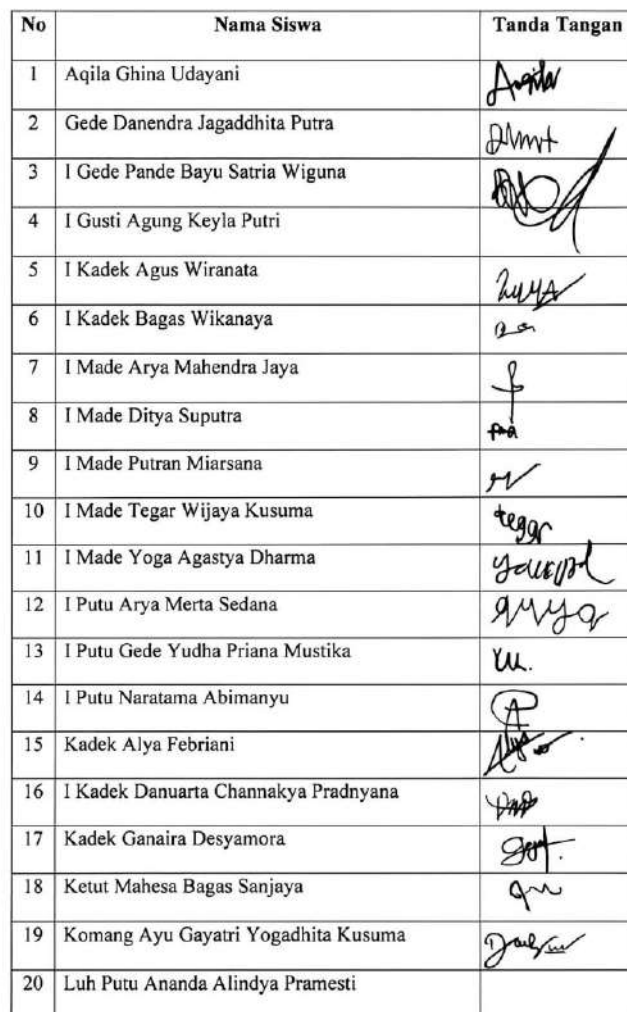 No Nama Siswa Tanda Tangan
1 Aqila Ghina Udayani Aqila
2 Gede Danendra Jagaddhita Putra
3 I Gede Pande Bayu Satria Wiguna
4 I Gusti Agung Keyla Putri
5 I Kadek Agus Wiranata
6 I Kadek Bagas Wikanaya
7 I Made Arya Mahendra Jaya
8 I Made Ditya Suputra
9 I Made Putran Miarsana
10 I Made Tegar Wijaya Kusuma tegar
11 I Made Yoga Agastya Dharma
12 I Putu Arya Merta Sedana arya
13 I Putu Gede Yudha Priana Mustika
14 I Putu Naratama Abimanyu
15 Kadek Alya Febriani
16 I Kadek Danuarta Channakya Pradnyana
17 Kadek Ganaira Desyamora
18 Ketut Mahesa Bagas Sanjaya
19 Komang Ayu Gayatri Yogadhita Kusuma
20 Luh Putu Ananda Alindya Pramesti